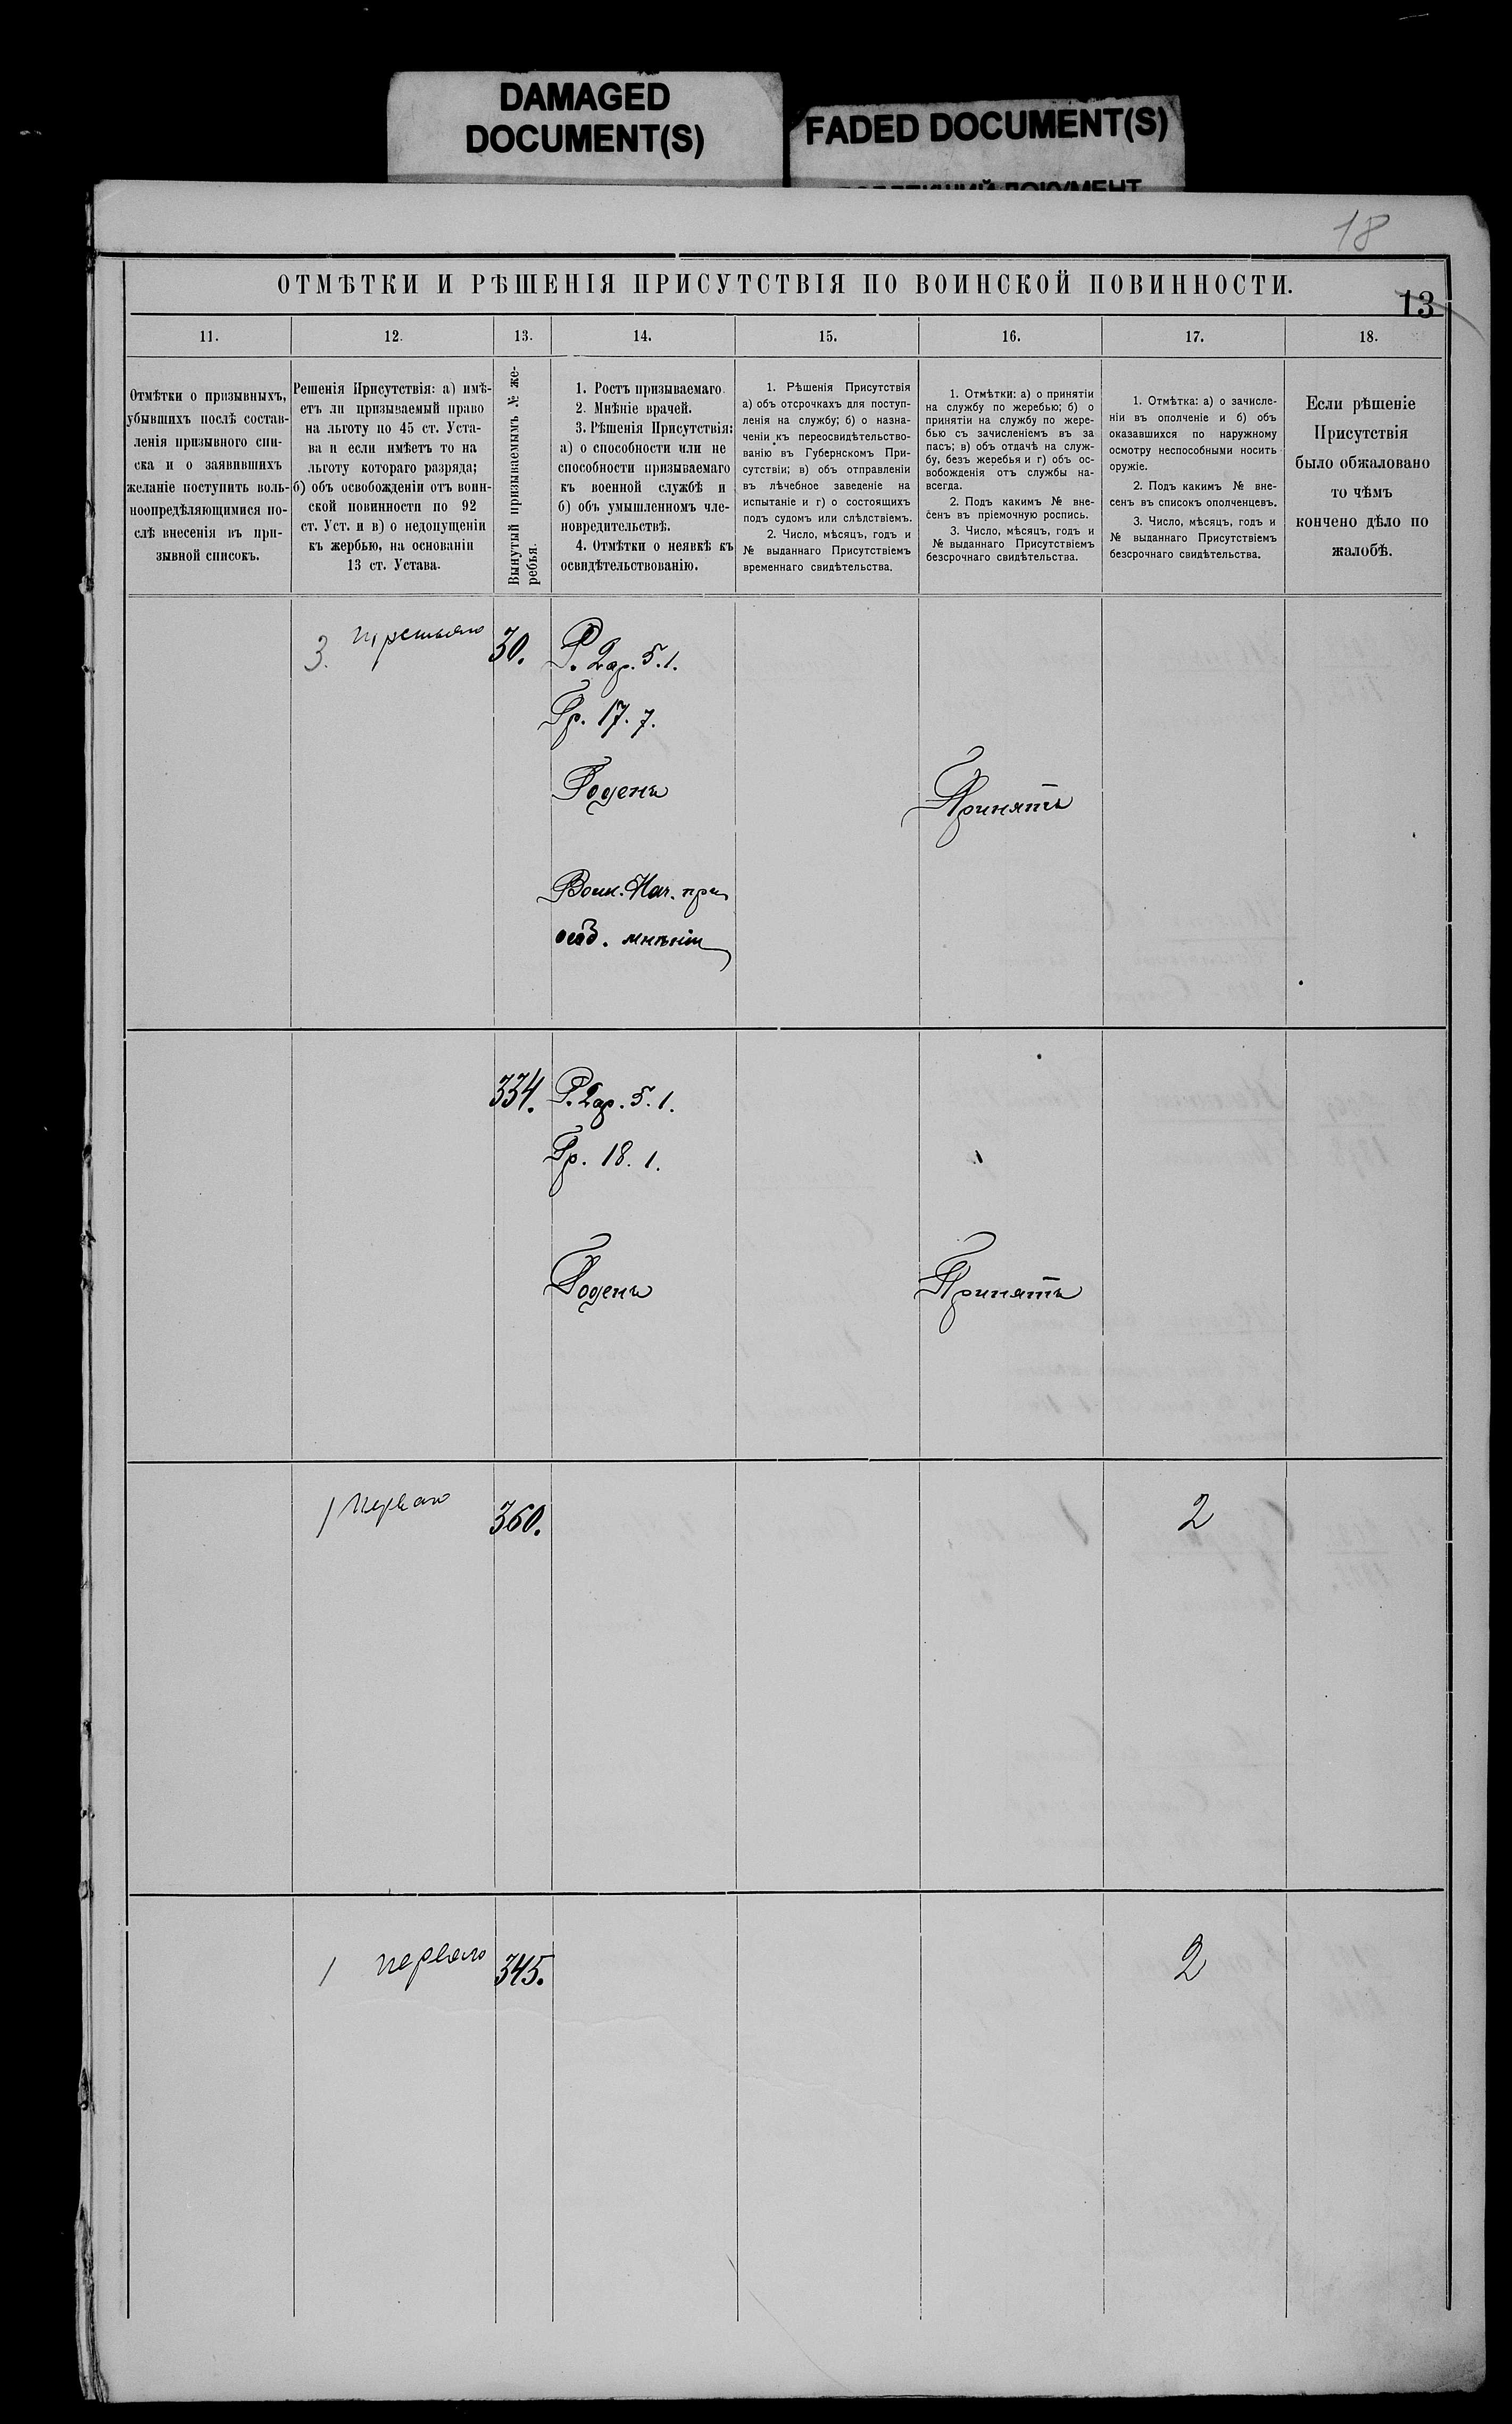 DAMAGED
DOCUMENT(S)
FADED DOCUMENT(S)
18
ОТМѢТКИ И РѢШЕНІЯ ПРИСУТСТВІЯ ПО ВОИНСКОЙ ПОВИННОСТИ.
13
11.
12.
13.
14.
15.
16.
17.
18.
Отмѣтки о призывныхъ,
убывшихъ послѣ состав-
ленія призывного спи-
ска и о заявившихъ
желаніе поступить воль-
ноопредѣляющимися по-
слѣ внесенія въ при-
зывной списокъ.
Решенія Присутствія: а) имѣ-
етъ ли призываемый право
на льготу по 45 ст. Уста-
ва и если имѣетъ то на
льготу котораго разряда;
б) объ освобожденіи отъ воин-
ской повинности по 92
ст. Уст. и в) о недопущеніи
къ жербью, на основаніи
13 ст. Устава.
Вынутый призываемымъ № же-
ребья.
1. Ростъ призываемаго.
2. Мнѣніе врачей.
3. Рѣшенія Присутствія:
а) о способности или не
способности призываемаго
къ военной службѣ и
б) объ умышленномъ чле-
новредительствѣ.
4. Отмѣтки о неявкѣ къ
освидѣтельствованію.
1. Рѣшенія Присутствія
а) объ отсрочкахъ для поступ-
ленія на службу; б) о назна-
ченіи къ переосвидѣтельство-
ванію въ Губернскомъ При-
сутствіи; в) объ отправленіи
въ лѣчебное заведеніе на
испытаніе и г) о состоящихъ
подъ судомъ или слѣдствіемъ.
2. Число, мѣсяцъ, годъ и
№ выданнаго Присутствіемъ
временнаго свидѣтельства.
1. Отмѣтки: а) о принятіи
на службу по жеребью; б) о
принятіи на службу по жере-
бью съ зачисленіемъ въ за
пасъ; в) объ отдачѣ на служ-
бу, безъ жеребья и г) объ ос-
вобожденія отъ службы на-
всегда.
2. Подъ какимъ № вне-
сенъ въ пріемочную роспись.
3. Число, мѣсяцъ, годъ и
№ выданнаго Присутствіемъ
безсрочнаго свидѣтельства.
1. Отмѣтка: а) о зачисле-
ніи въ ополченіе и б) объ
оказавшихся по наружному
осмотру неспособными носить
оружіе.
2. Подъ какимъ № вне-
сенъ въ списокъ ополченцевъ.
3. Число, мѣсяцъ, годъ и
№ выданнаго Присутствіемъ
безсрочнаго свидѣтельства.
Если рѣшеніе
Присутствія
было обжаловано
то чѣмъ
кончено дѣло по
жалобѣ.
3. третьяго
30.
Р. 2 ар. 5. 1.
Гр. 17. 7.
Годенъ
Воин. Нач. при
особ. мнѣніи
Принятъ
334.
Р. 2 ар. 5. 1.
Гр. 18. 1.
Годенъ
Принятъ
1 перваго
360.
2
1 перваго
345.
2